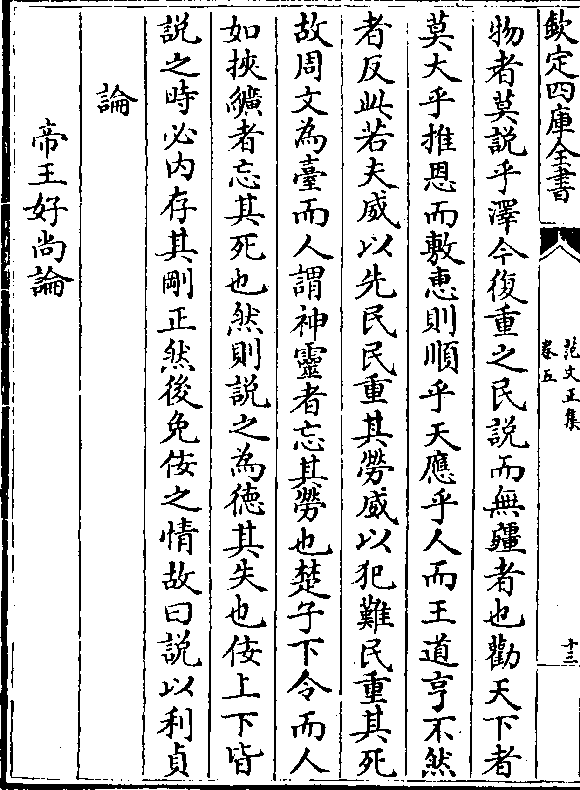 欽定四庫全書
范文正集
卷五
十三
物者莫説乎澤今復重之民説而無疆者也勸天下者
莫大乎推恩而敷惠則順乎天應乎人而王道亨不然
者反此若夫威以先民民重其勞威以犯難民重其死
故周文為臺而人謂神靈者忘其勞也楚子下令而人
如挾纊者忘其死也然則説之為徳其失也佞上下皆
説之時必内存其剛正然後免佞之情故曰説以利貞
論
帝王好尚論